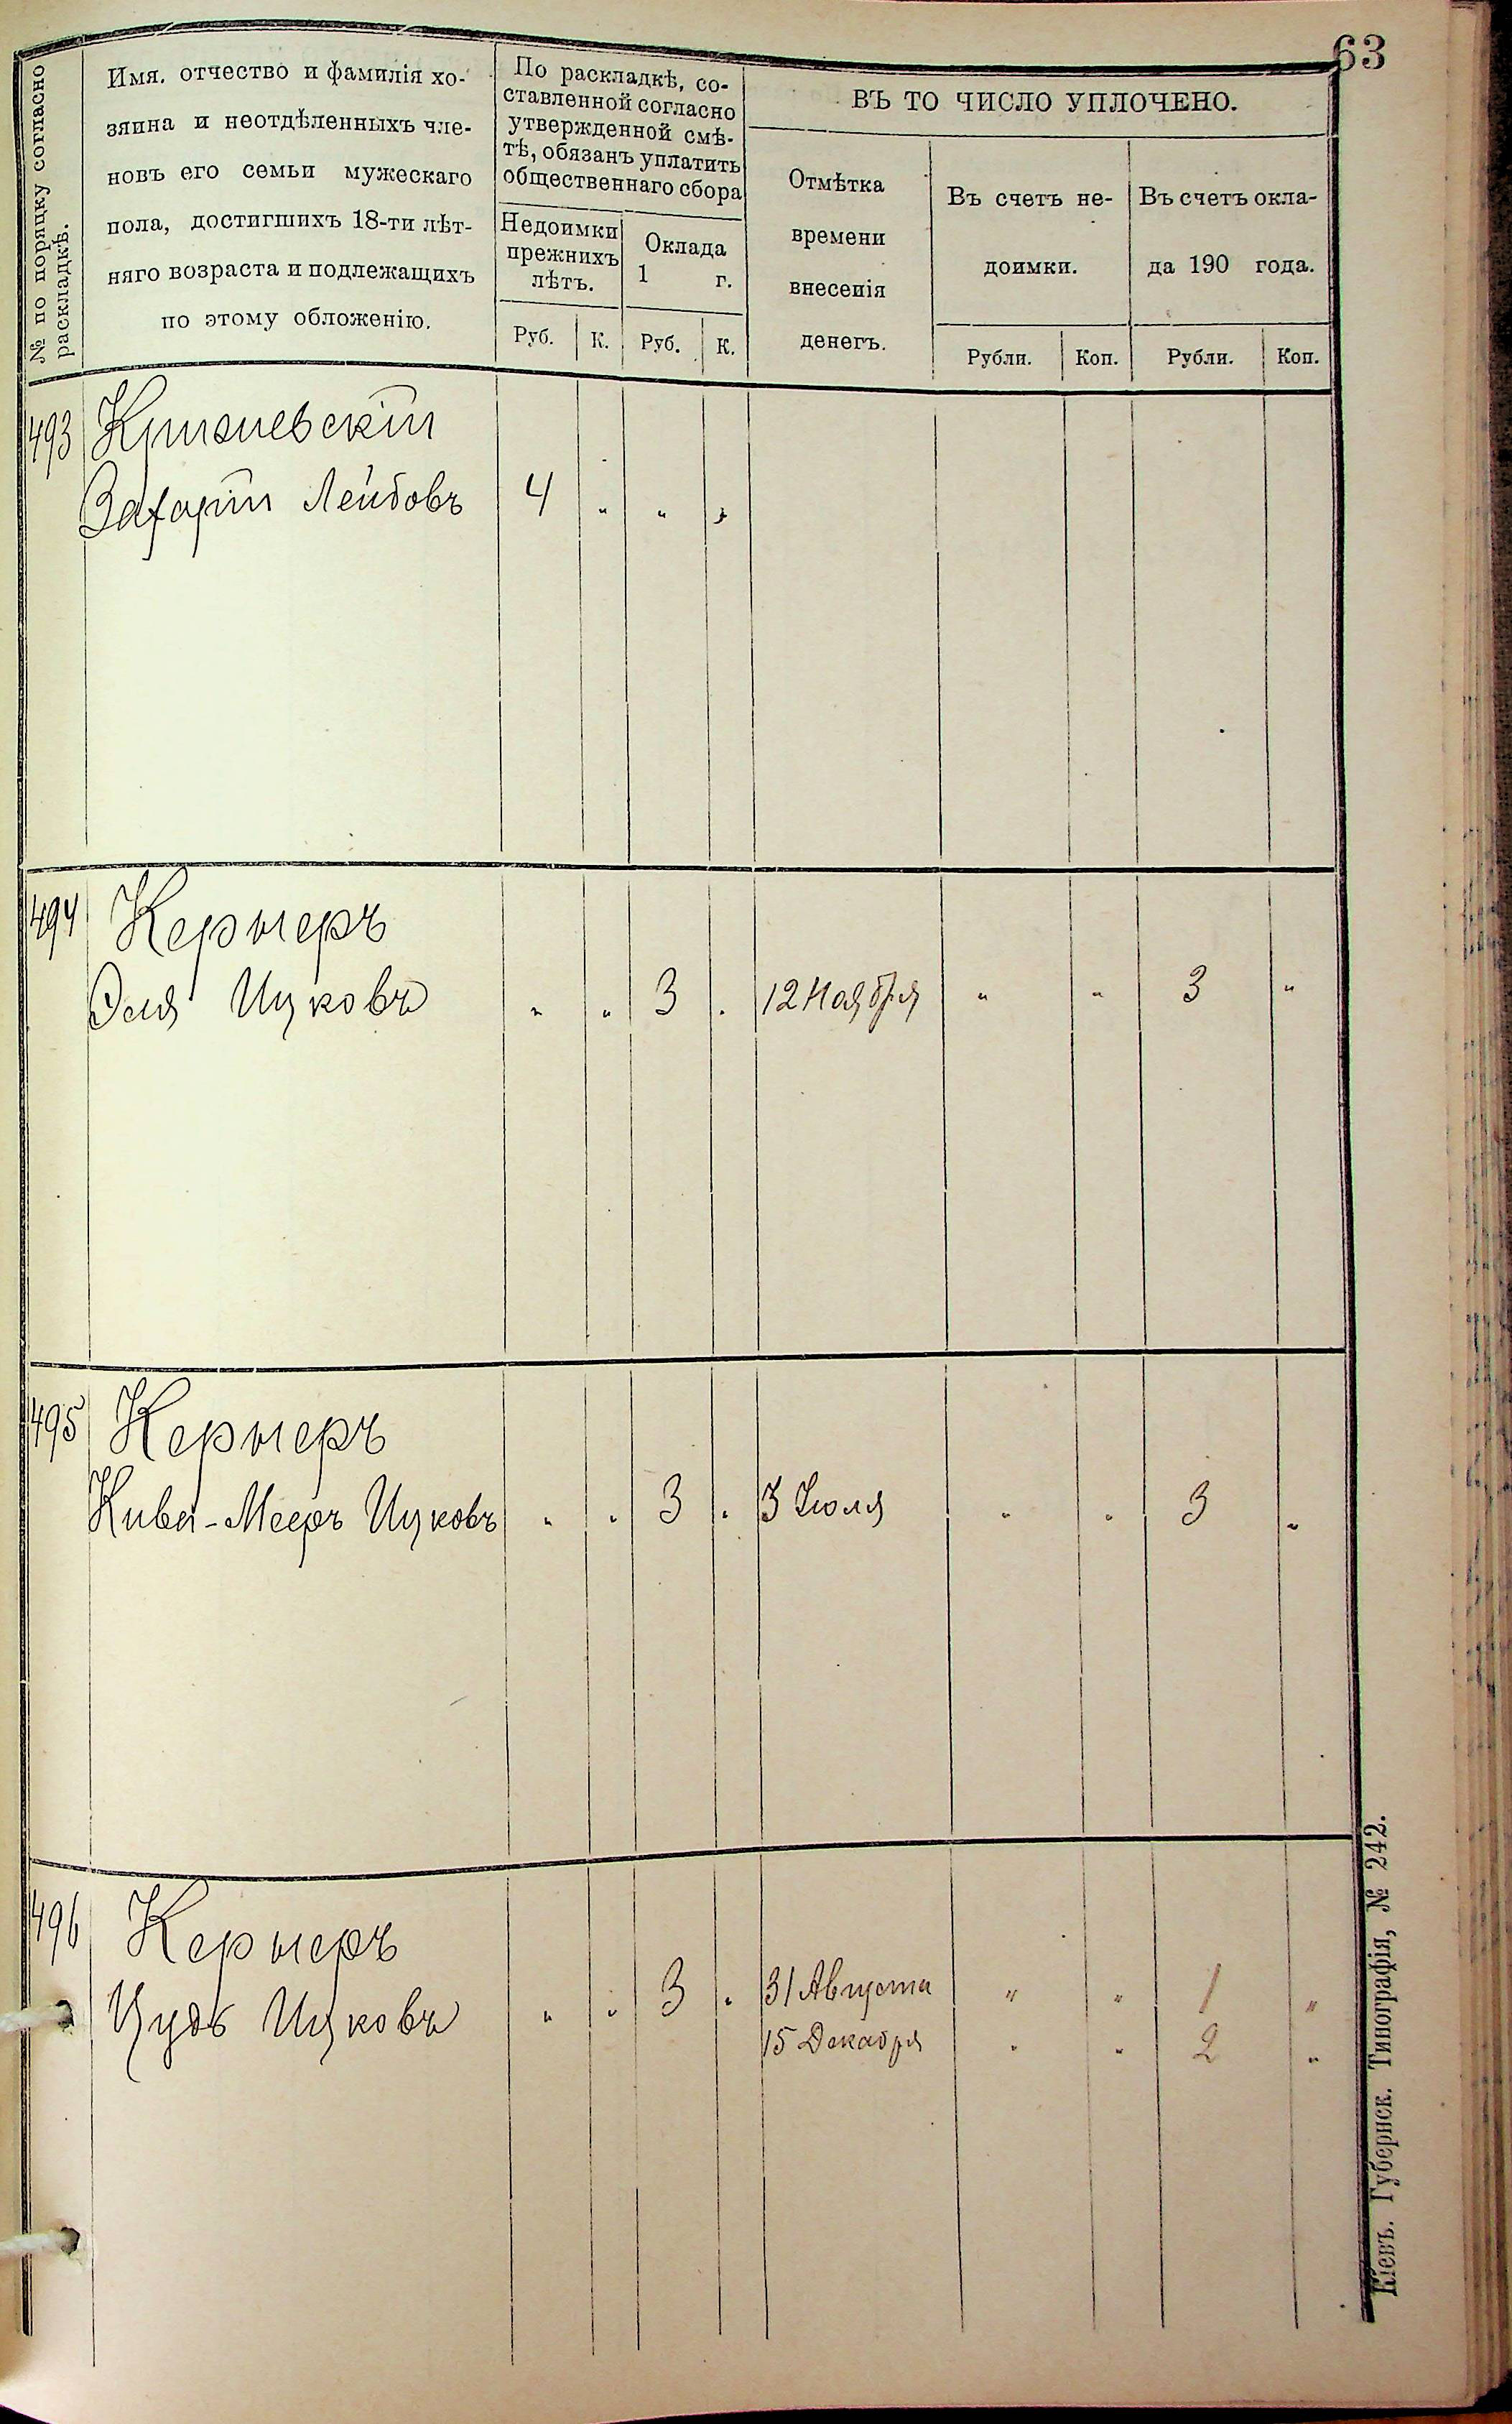 63
№ по порядку согласно
раскладкѣ.
Имя. отчество и фамилія хо-
зяина и неотдѣленныхъ чле-
новъ его семьи мужескаго
пола, достигшихъ 18-ти лѣт-
няго возраста и подлежащихъ
по этому обложенію.
По раскладкѣ, со-
ставленной согласно
утвержденной смѣ-
тѣ, обязанъ уплатить
общественнаго сбора
Недоимки
прежнихъ
лѣтъ.
Оклада
1 г.
Руб. К. Руб. К.
ВЪ ТО ЧИСЛО УПЛОЧЕНО.
Отмѣтка
времени
внесенія
денегъ.
Въ счетъ не-
доимки.
Въ счетъ окла-
да 190 года.
Рубли. Коп. Рубли. Коп.
493
Захарій Лейбовъ 4 " " "
494 Кернеръ
Эля Ицковъ " " 3 " 12 Ноября " " 3 "
495 Кернеръ
Кива-Мееръ Ицковъ " " 3 " 3 Іюля " " 3 "
496 Кернеръ
Ицковъ " " 3 " 31 Августа " " 1 "
15 Декабря " " 2 "
Кіевъ. Губернск. Типографія, № 242.